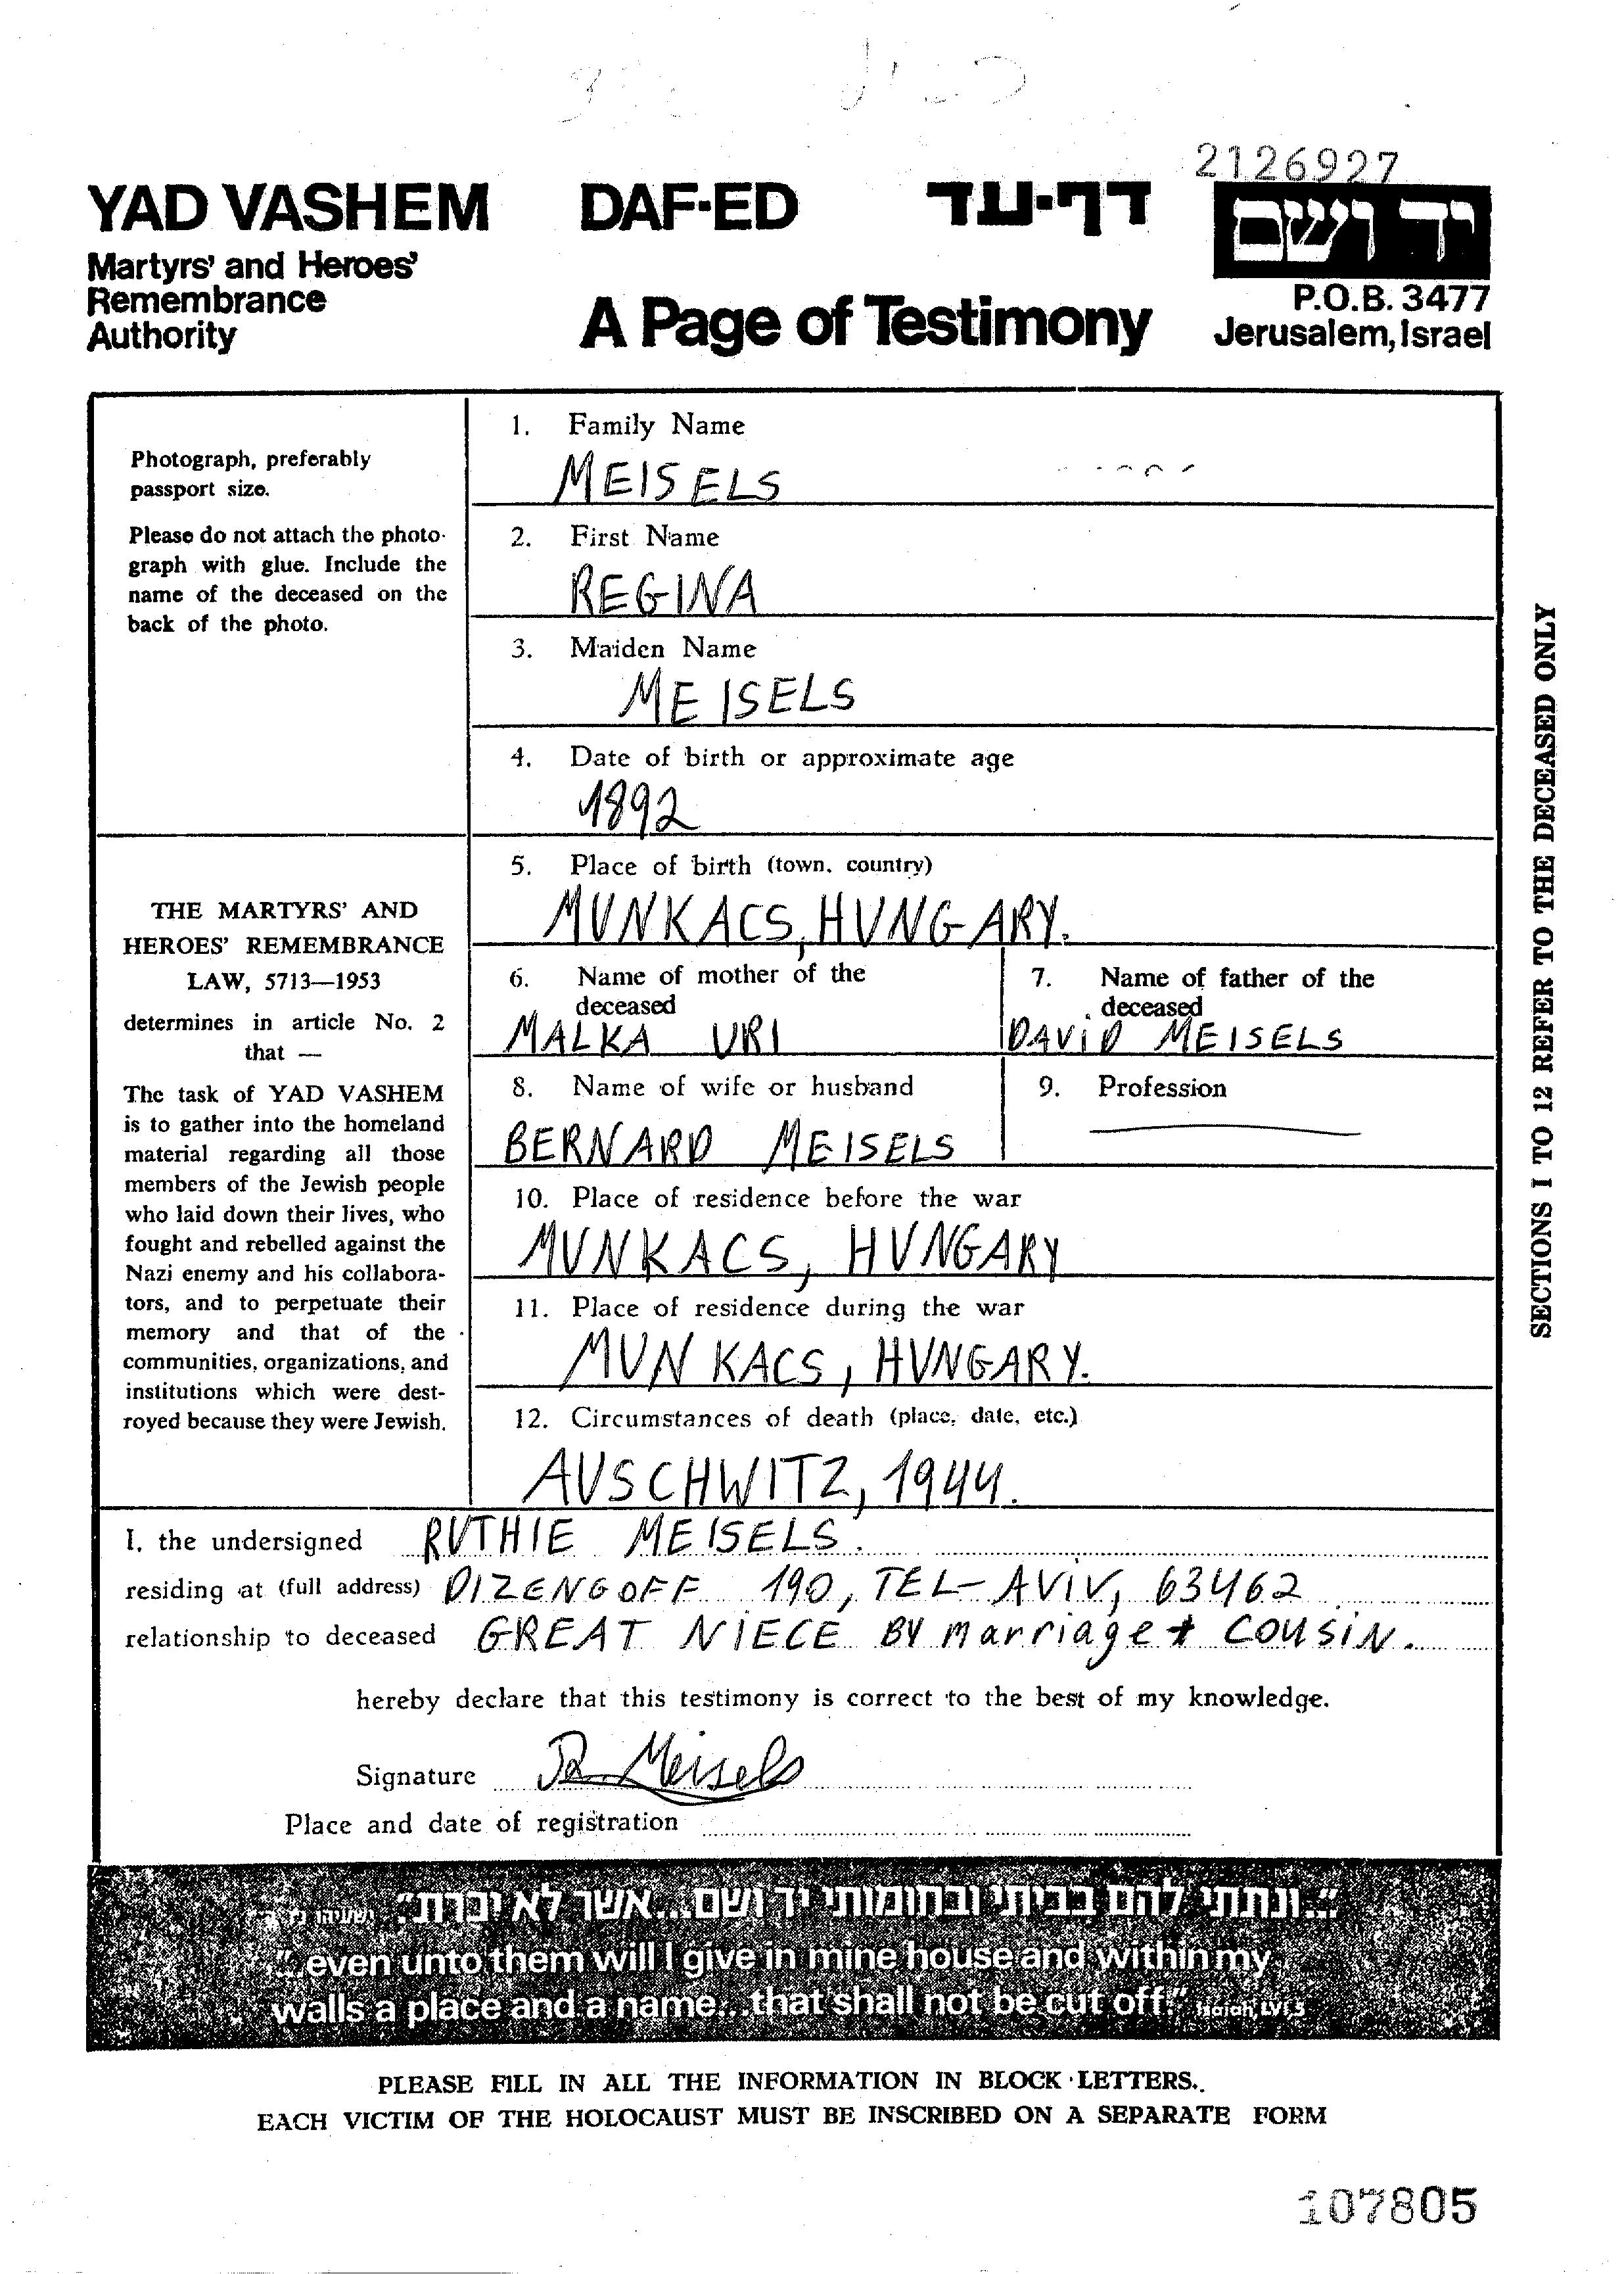 2126927
YAD VASHEM DAF-ED דף-עד יד ושם
Martyrs' and Heroes'
Remembrance
Authority
A Page of Testimony
P.O.B. 3477
Jerusalem, Israel
Photograph, preferably
passport size.
Please do not attach the photo-
graph with glue. Include the
name of the deceased on the
back of the photo.
THE MARTYRS' AND
HEROES' REMEMBRANCE
LAW, 5713—1953
determines in article No. 2
that —
The task of YAD VASHEM
is to gather into the homeland
material regarding all those
members of the Jewish people
who laid down their lives, who
fought and rebelled against the
Nazi enemy and his collabora-
tors, and to perpetuate their
memory and that of the
communities, organizations, and
institutions which were dest-
royed because they were Jewish.
1. Family Name
MEISELS
2. First Name
REGINA
3. Maiden Name
MEISELS
4. Date of birth or approximate age
1892
5. Place of birth (town, country)
MUNKACS, HUNGARY.
6. Name of mother of the
deceased
MALKA URI
7. Name of father of the
deceased
DAViD MEISELS
8. Name of wife or husband
BERNARD MEISELS
9. Profession
10. Place of residence before the war
MUNKACS, HUNGARY
11. Place of residence during the war
MUNKACS, HUNGARY.
12. Circumstances of death (place, date, etc.)
AUSCHWITZ, 1944.
SECTIONS 1 TO 12 REFER TO THE DECEASED ONLY
I, the undersigned RUTHIE MEISELS.
residing at (full address) DIZENGOFF 190, TEL-AViV, 63462
relationship to deceased GREAT NIECE BY marriage + COUSiN.
hereby declare that this testimony is correct to the best of my knowledge.
Signature R. Meisels
Place and date of registration
"...ונתתי להם בביתי ובחומותי יד ושם...אשר לא יכרת". ישעיהו
"...even unto them will I give in mine house and within my
walls a place and a name...that shall not be cut off." Isaiah, LVI 5
PLEASE FILL IN ALL THE INFORMATION IN BLOCK LETTERS.
EACH VICTIM OF THE HOLOCAUST MUST BE INSCRIBED ON A SEPARATE FORM
107805